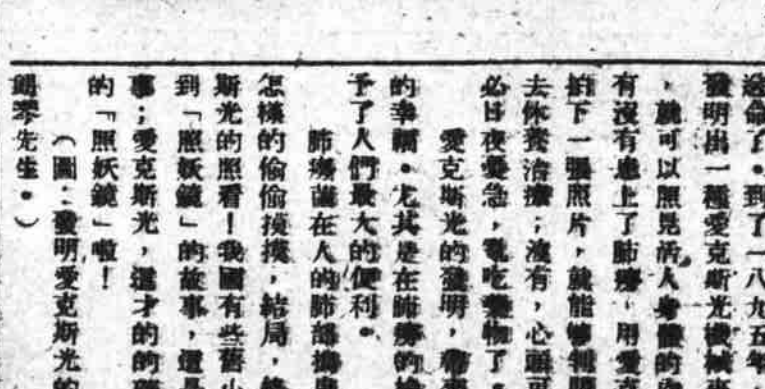 送命了。到了一八九五年，
發明出一種愛克斯光機械
，就可以照見活人身體的內
有沒有患上了肺癆，用愛
拍下一張照片，就能夠判明
去休養治療；沒有，心頭可
必日夜憂急，亂吃藥物了。
愛克斯光的發明，帶來
的幸福。尤其是在肺癆的檢
予了人們最大的便利。
肺癆菌在人的肺部搗鬼
怎樣的偷偷摸摸，結局，終
斯光的照看！我國有些舊小
到「照妖鏡」的故事，還是
事；愛克斯光，這才的的確
的「照妖鏡」啦！
（圖：發明愛克斯光的
琴先生。）